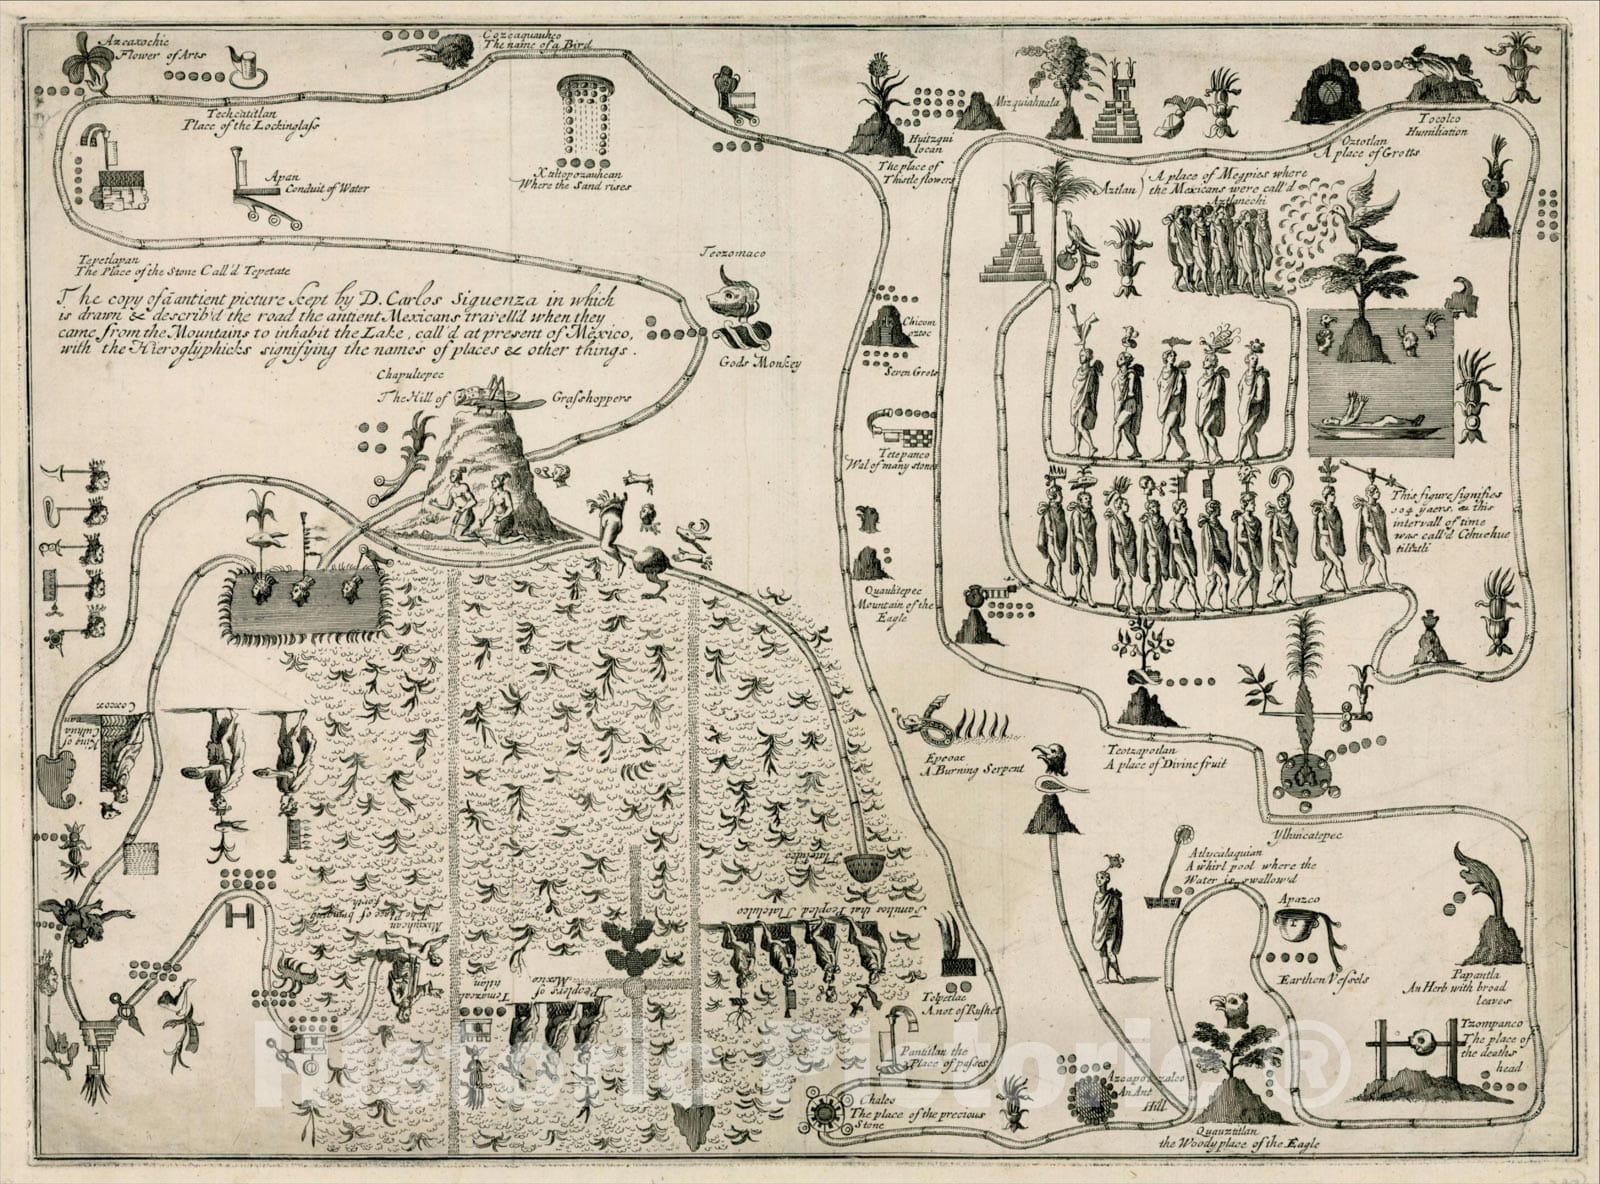 Azcaxochic
Flower of Arts
Cozcaquauhco
The name of a Bird
Techcatitlan
Place of the Lockinglass
Apan
Conduit of Water
Xaltopozauhcan
Where the Sand rises
Tepetlapan
The Place of the Stone Call'd Tepetate
Teozomaco
Gods Monkey
The copy of a antient picture kept by D. Carlos Siguenza in which
is drawn & describ'd the road the antient Mexicans travell'd when they
came from the Mountains to inhabit the Lake, call'd at present of Mexico,
with the Hieroglyphicks signifying the names of places & other things.
Chapultepec
The Hill of Grasshoppers
Huitzqui
locan
The place of
Thistle flowers
Mizquiahuala
Oztotlan
A place of Grotts
Tocolco
Humiliation
Aztlan
A place of Megpies where
the Mexicans were call'd
Aztlanechi
Chicom
oztoc
Seven Grots
Tetepanco
Wal of many stones
Quauhtepec
Mountain of the
Eagle
This figure signifies
104 yaers, & this
intervall of time
was call'd Cehuehue
tilitzli
Epcoac
A Burning Serpent
Teotzapotlan
A place of Divine fruit
Ylhuicatepec
Atlycalaquian
A whirl pool where the
Water is swallow'd
Apazco
Earthen Vessels
Papantla
An Herb with broad
leaves
Tzompanco
The place of
the deaths
head
Tolpetlac
A not of Rushes
Pantitlan the
Place of passes
Chalco
The place of the precious
Stone
Azcapotzalco
An Ant
Hill
Quauztitlan
the Woody place of the Eagle
Coxcox
King of
Culhua
can
Mixiuhcan
The Place of bringing
forth
Tlatelulco
Families that Peopled Tlatelulco
Peoplers of
Mexico
Tenuxcal
titlan
Historic Pictoric®